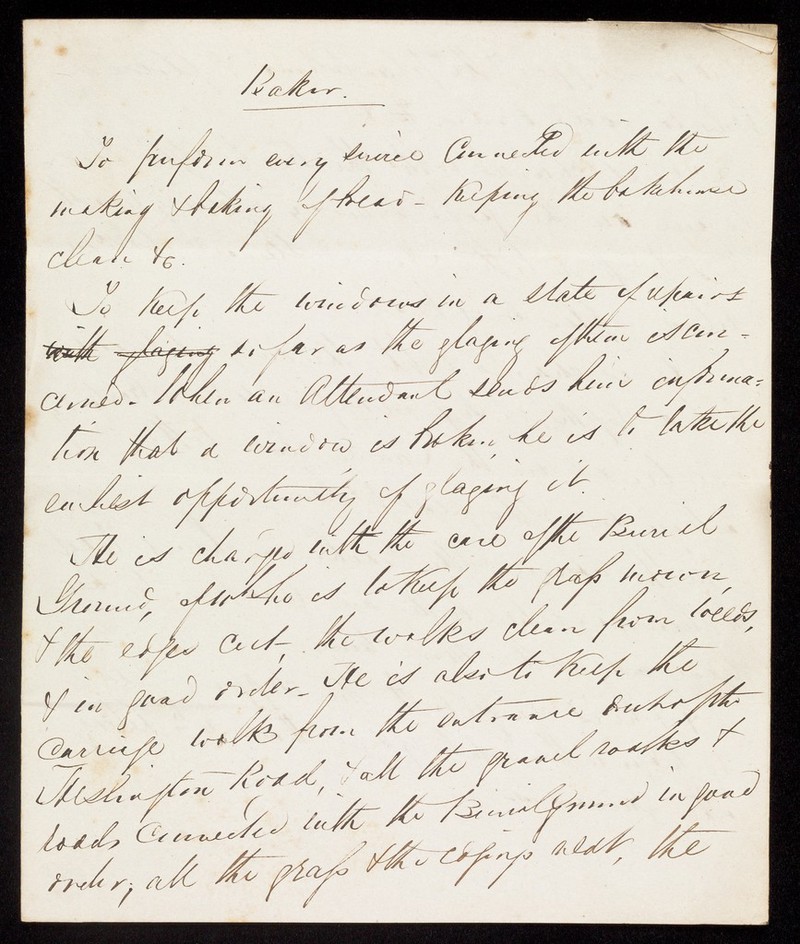 Baker.
To perform every service connected with the
making & baking of bread - Keeping the bakehouse
clean &c.
To Keep the windows in a state of repairs
with glazing so far as the glazing of them is con=
cerned. When an Attendant sends him informa=
tion that a window is broken, he is to take the
earliest opportunity of glazing it.
He is charged with the care of the Burial
Ground, of wh he is to Keep the grass mown,
& the edges cut, the walks clean from weeds,
& in good order. He is also to Keep the
carriage walk from the entrance on the
Heslington Road, & all the gravel walks &
roads connected with the Burial Ground in good
order; all the grass & the edgings neat, the